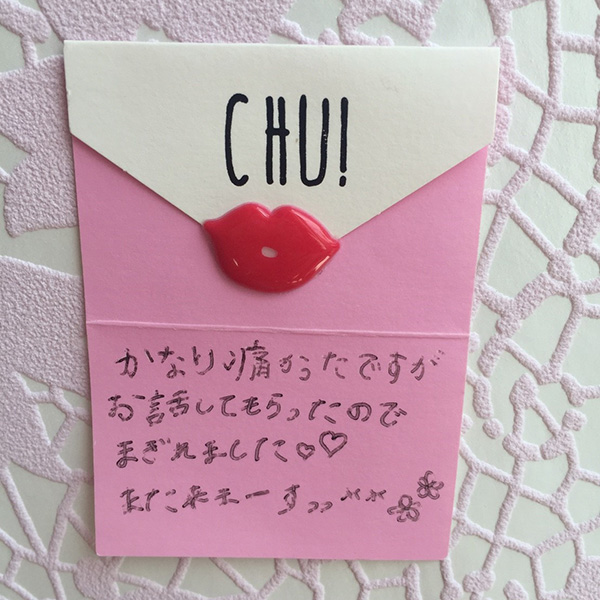 CHU!
かなり痛かったですが
お話してもらったので
まぎれました♡♡
また来まーすっっ^^